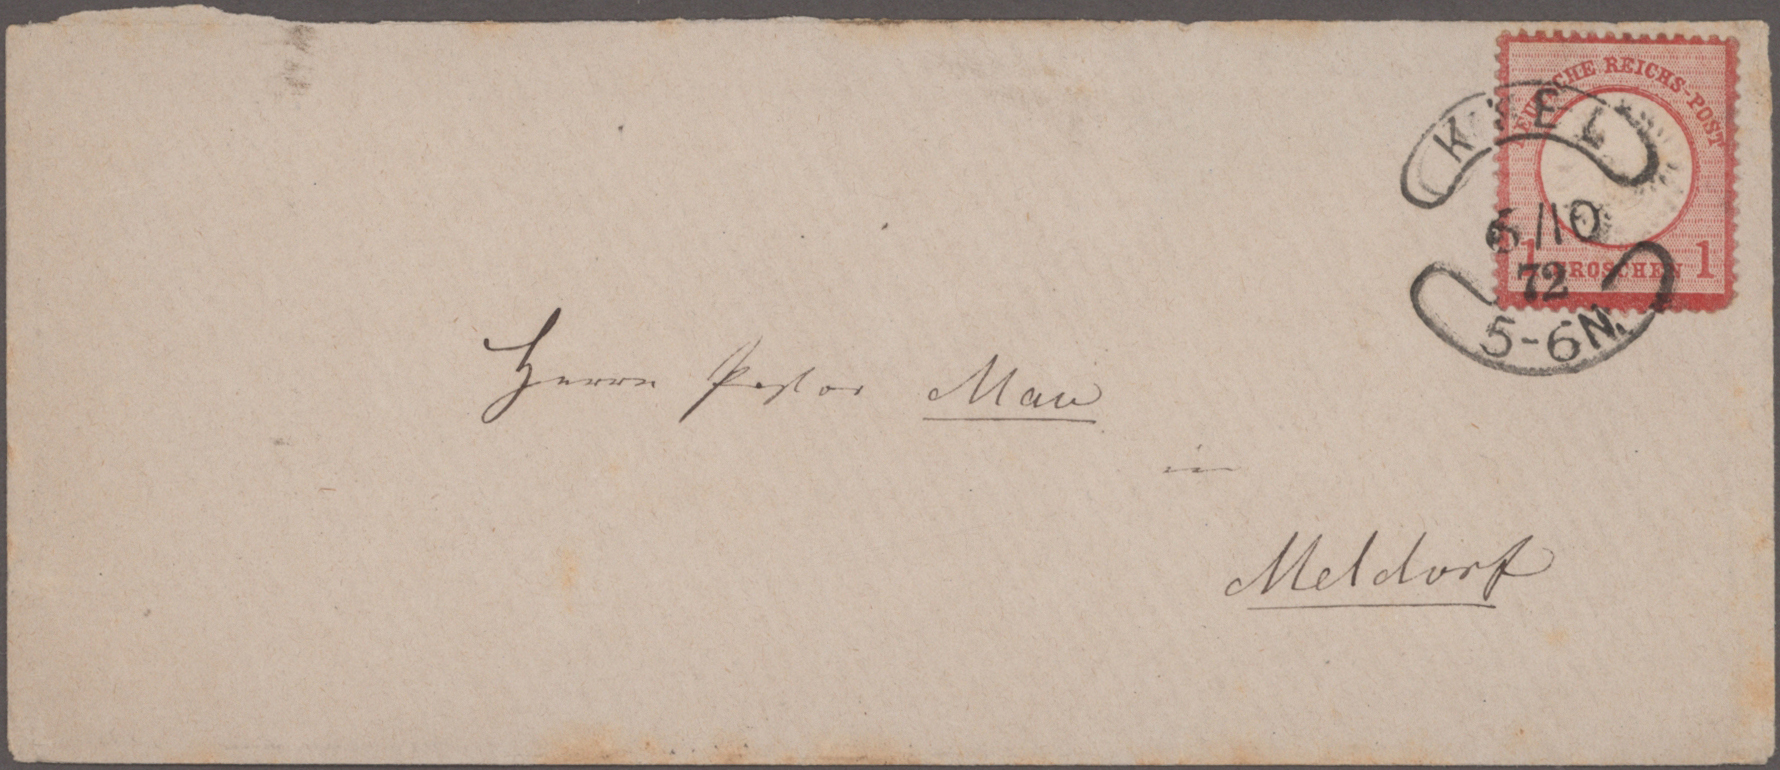 DEUTSCHE REICHS-POST
1 GROSCHEN 1
KIEL
6/10
72
5-6N.
Herrn Pastor Mau
in
Meldorf